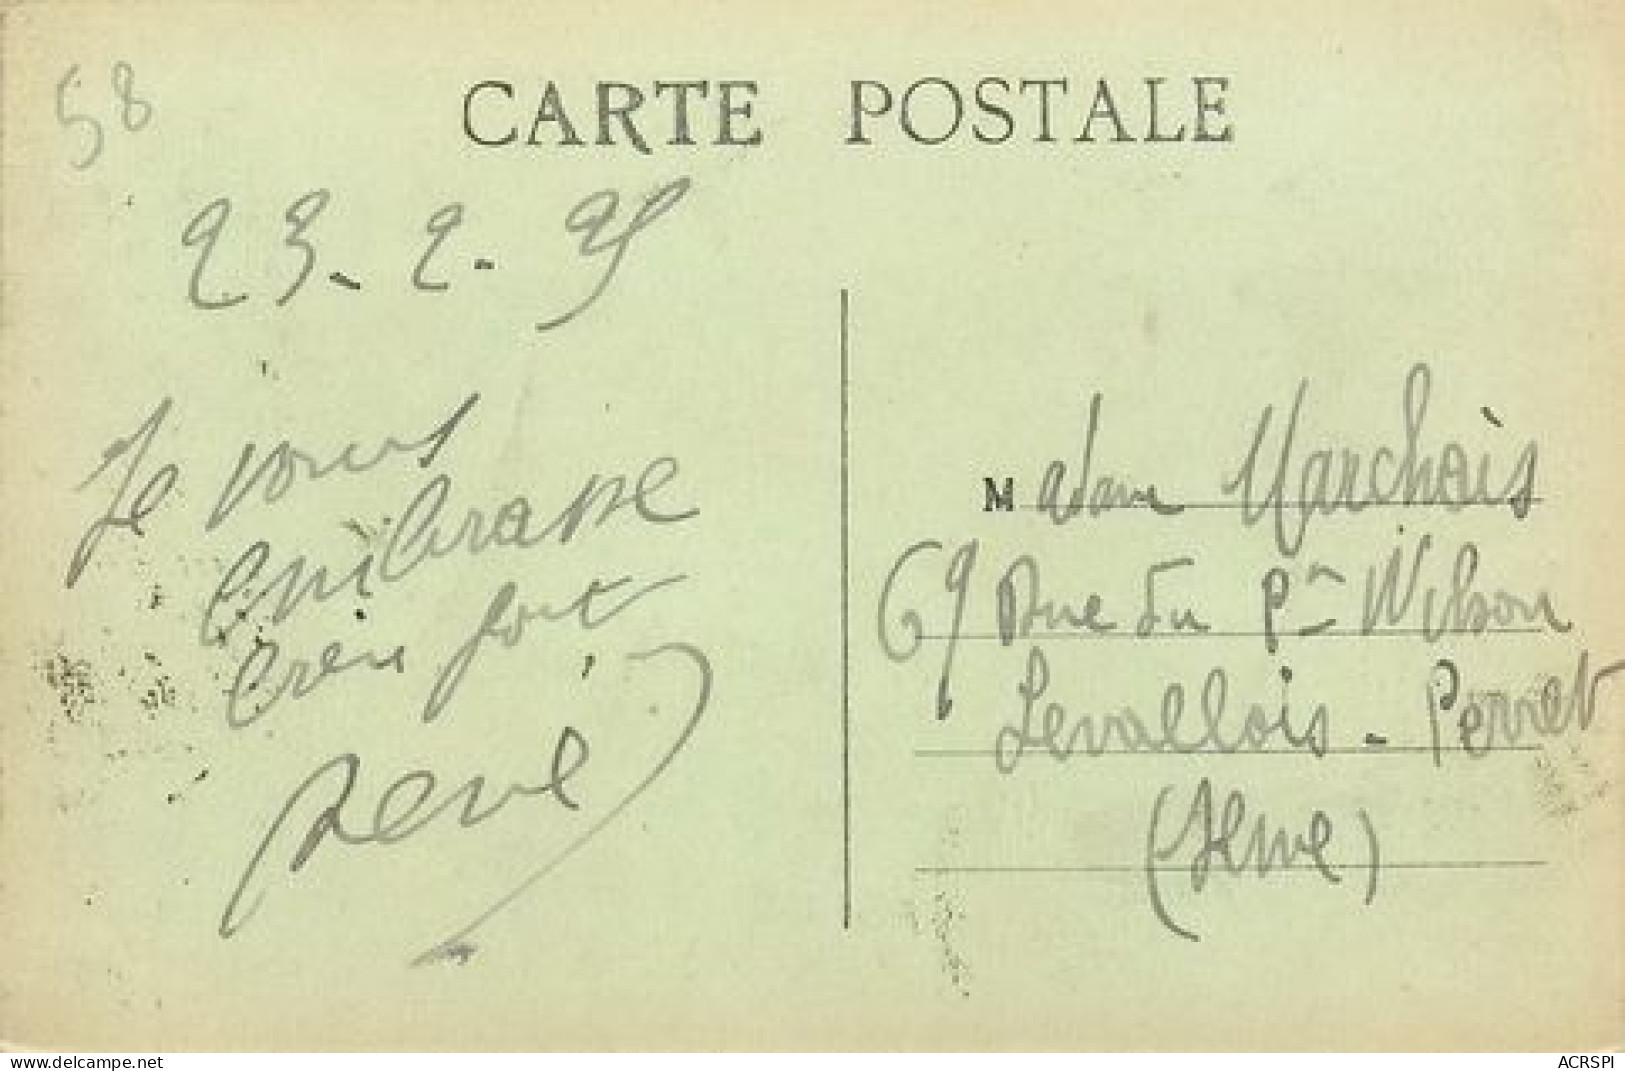 58
CARTE POSTALE
23-2-25
Je vous
embrasse
bien fort
René
Madame Marchais
69 Rue du Pn Wilson
Levallois-Perret
(Seine)
www.delcampe.net
ACRSPI